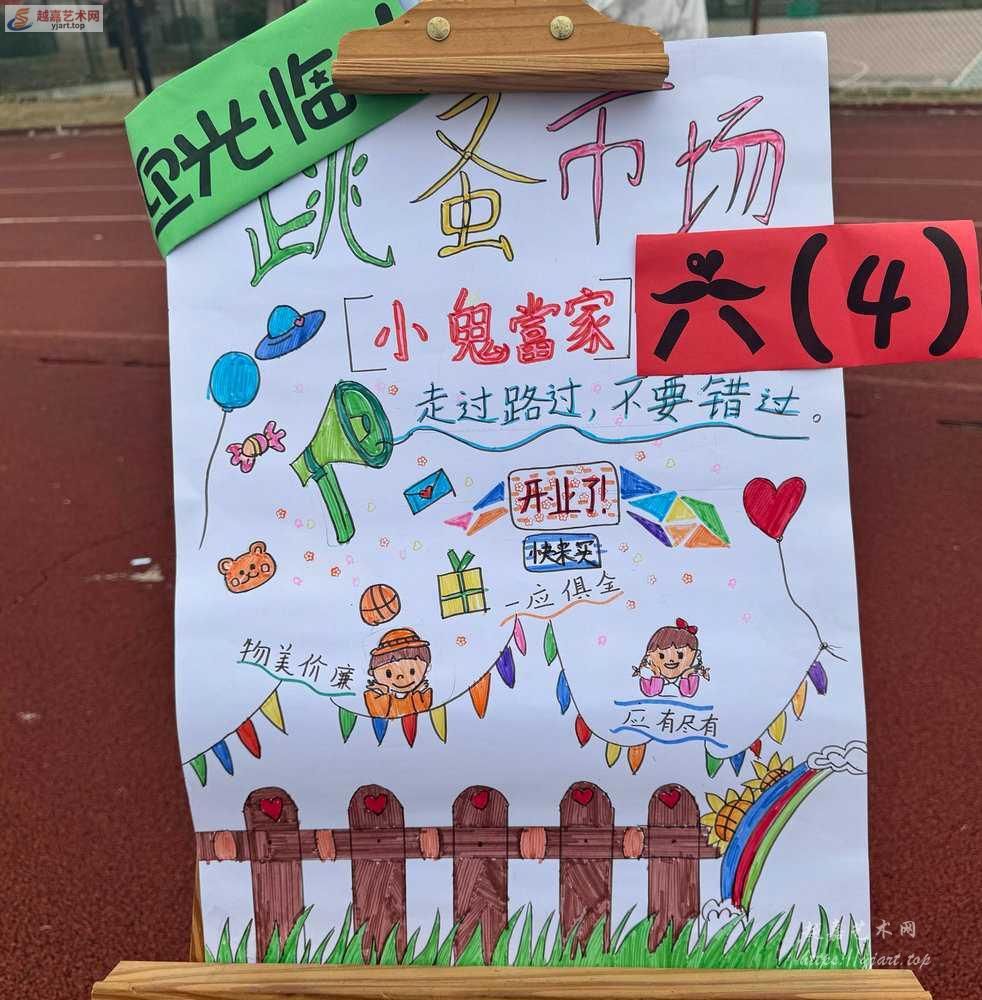 越嘉艺术网
yjart.top
光临
跳蚤市场
小鬼當家
六(4)
走过路过,不要错过。
开业了!
快来买
一应俱全
物美价廉
应有尽有
越嘉艺术网
https://yjart.top